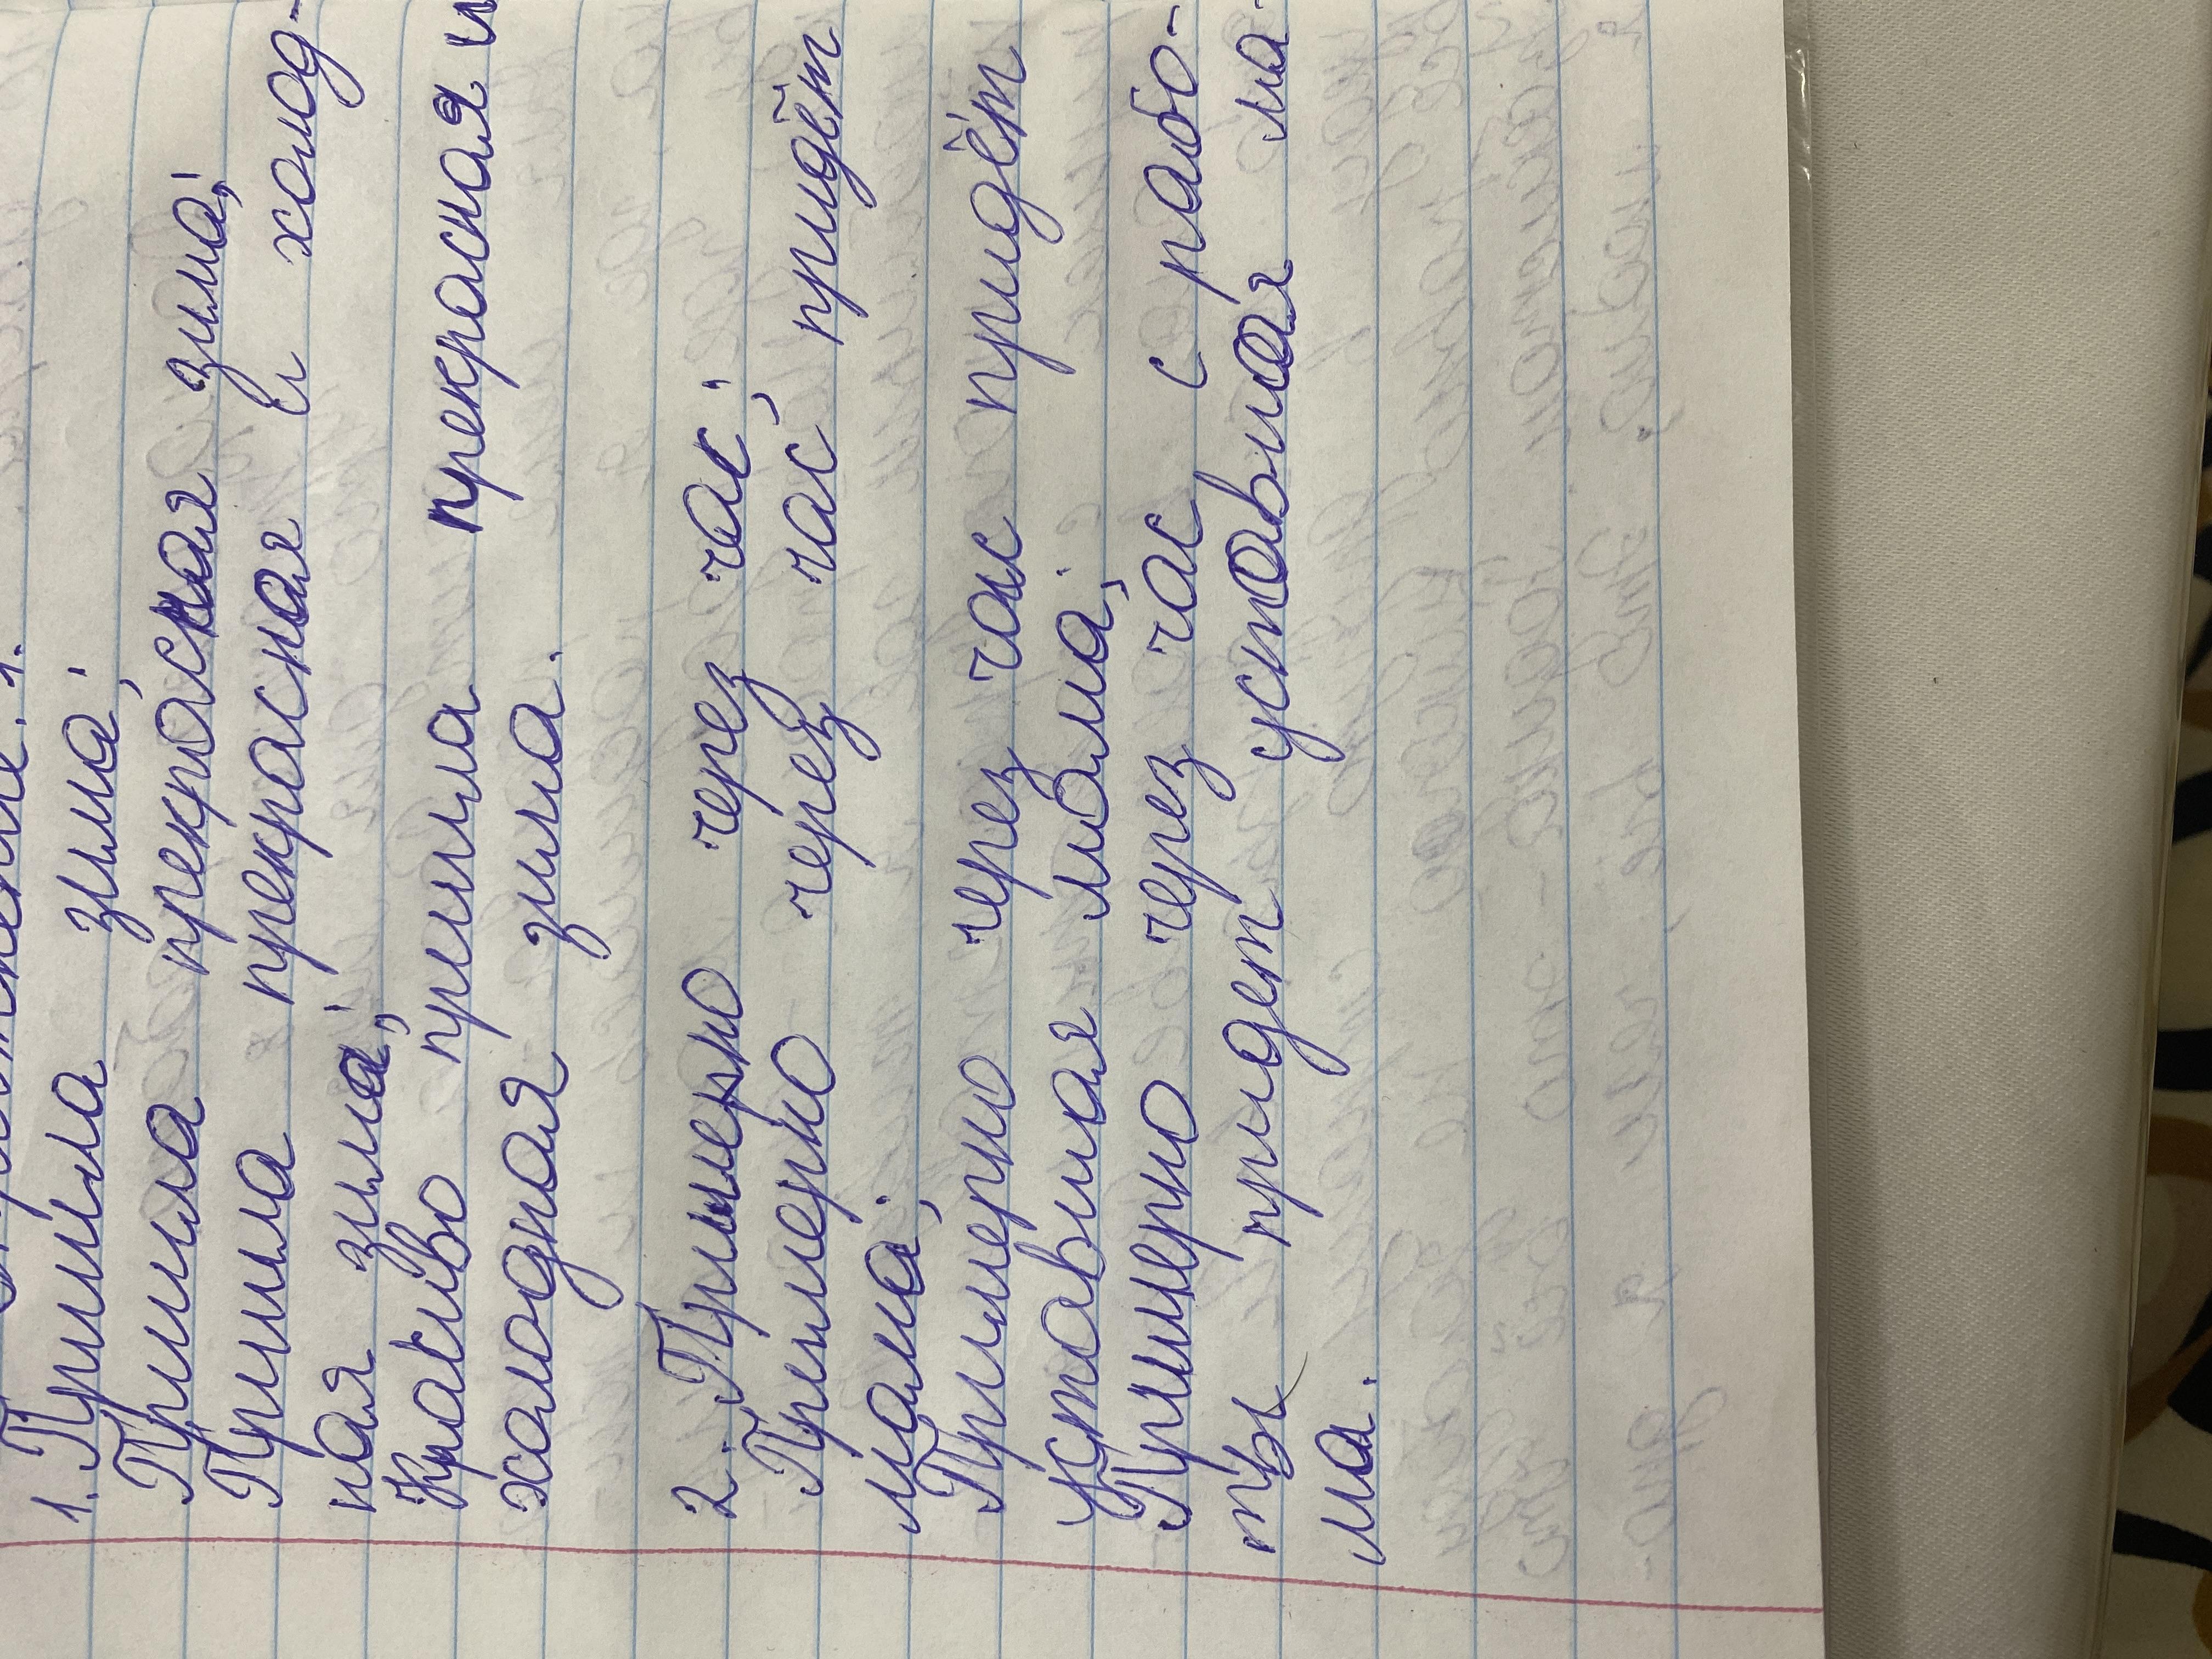 1. Пришла зима;
Пришла прекрасная зима;
Пришла прекрасная и холод-
ная зима;
Красиво пришла прекрасная и
холодная зима.
2. Примерно через час;
Примерно через час, придёт
мама;
Примерно через час придёт
уставшая мама;
Примерно через час с рабо-
ты придет уставшая ма-
ма.